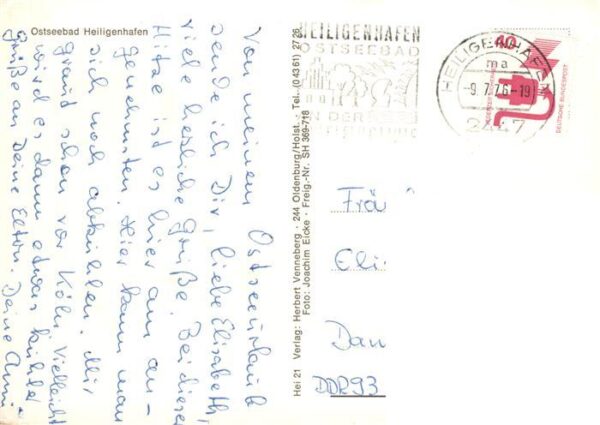 Ostseebad Heiligenhafen
Von meinem Ostseeurlaub
sende ich Dir, liebe Elisabeth
viele herzliche Grüße. Bei dieser
Hitze ist es hier am an-
genehmsten. Hier kann man
sich noch abkühlen. Mir
graust schon vor Köln. Vielleicht
wird es dann etwas kühler
Grüße an Deine Eltern. Deine Anni
Hei 21 Verlag: Herbert Venneberg · 244 Oldenburg/Holst. · Tel. (04361) 2726
Foto: Joachim Eicke · Freig.-Nr. SH 369-718
HEILIGENHAFEN
OSTSEEBAD
AN DER
HEILIGENHAFEN
ma
-9.7.76-19
2447
40
DEUTSCHE BUNDESPOST
Frä
Eli
Dan
DDR 93